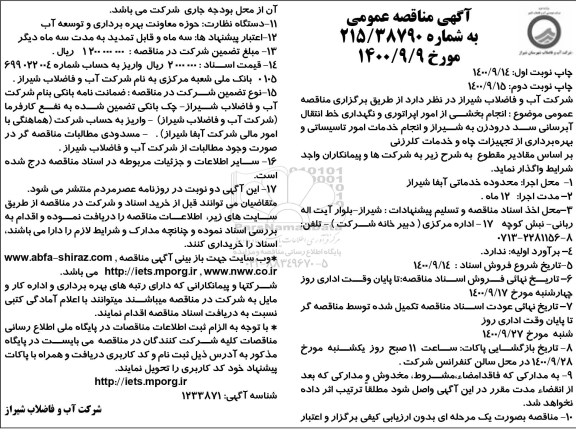 آگهی مناقصه عمومی
به شماره ۲۱۵/۳۸۷۹۰
مورخ ۱۴۰۰/۹/۹
چاپ نوبت اول: ۱۴۰۰/۹/۱۴
چاپ نوبت دوم: ۱۴۰۰/۹/۱۵
شرکت آب و فاضلاب شیراز در نظر دارد از طریق برگزاری مناقصه
عمومی موضوع : انجام بخشی از امور اپراتوری و نگهداری خط انتقال
آبرسانی سد درودزن به شیراز و انجام خدمات امور تاسیساتی و
بهره‌برداری از تجهیزات چاه و خدمات کلرزنی
بر اساس مقادیر مقطوع به شرح زیر به شرکت ها و پیمانکاران واجد
شرایط واگذار نماید.
۱- محل اجرا: محدوده خدماتی آبفا شیراز
۲-مدت اجرا: ۱۲ ماه .
۳-محل اخذ اسناد مناقصه و تسلیم پیشنهادات : شیراز-بلوار آیت اله
ربانی- نبش کوچه ۱۷ - اداره مرکزی ( دبیر خانه شرکت ) - تلفن:
۸-۰۷۱۳-۲۲۸۱۱۵۶
۴- برآورد اولیه: ندارد.
۵-تاریخ شروع فروش اسناد : ۱۴۰۰/۹/۱۴
۶-تاریخ نهائی فروش اسناد مناقصه:تا پایان وقت اداری روز
چهارشنبه مورخ ۱۴۰۰/۹/۱۷
۷-تاریخ نهائی عودت اسناد مناقصه تکمیل شده توسط مناقصه گر
تا پایان وقت اداری روز
شنبه مورخ ۱۴۰۰/۹/۲۷
۸- تاریخ بازگشایی پاکات: ساعت ۱۱ صبح روز یکشنبه مورخ
۱۴۰۰/۹/۲۸ در محل سالن کنفرانس شرکت .
۹- به مدارکی که فاقدامضاء،مشروط، مخدوش و مدارکی که بعد
از انقضاء مدت مقرر در این آگهی واصل شود مطلقاً ترتیب اثر داده
نخواهد شد.
۱۰- مناقصه بصورت یک مرحله ای بدون ارزیابی کیفی برگزار و اعتبار
آن از محل بودجه جاری شرکت می باشد.
۱۱-دستگاه نظارت: حوزه معاونت بهره برداری و توسعه آب
۱۲-اعتبار پیشنهاد ها: سه ماه و قابل تمدید به مدت سه ماه دیگر
۱۳- مبلغ تضمین شرکت در مناقصه : ۱۲۰۰۰۰۰۰۰۰ ریال .
۱۴- قیمت اسناد : ۲۰۰۰۰۰۰ ریال واریز به حساب شماره ۶۹۹۰۲۲۰۰۴
۰۱۰۵ بانک ملی شعبه مرکزی به نام شرکت آب و فاضلاب شیراز .
۱۵-نوع تضمین شرکت در مناقصه : ضمانت نامه بانکی بنام شرکت
آب و فاضلاب شیراز- چک بانکی تضمین شده به نفع کارفرما
(شرکت آب و فاضلاب شیراز) - واریز به حساب شرکت (هماهنگی با
امور مالی شرکت آبفا شیراز) . - مسدودی مطالبات مناقصه گر در
صورت وجود مطالبات از شرکت آب و فاضلاب شیراز .
۱۶- سایر اطلاعات و جزئیات مربوطه در اسناد مناقصه درج شده
است.
۱۷- این آگهی دو نوبت در روزنامه عصرمردم منتشر می شود.
متقاضیان می توانند قبل از خرید اسناد و شرکت در مناقصه از طریق
سایت های زیر، اطلاعات مناقصه را دریافت نموده و اقدام به
بررسی اسناد نموده و چنانچه مدارک و شرایط لازم را دارا می باشند،
اسناد را خریداری کنند.
*وب سایت جهت باز بینی آگهی مناقصه www.abfa-shiraz.com ,
http://iets.mporg.ir , www.nww.co.ir می باشد.
شرکتها و پیمانکارانی که دارای رتبه های بهره برداری و اداره کار و
مایل به شرکت در مناقصه میباشند میتوانند با اعلام آمادگی کتبی
نسبت به دریافت اسناد مناقصه اقدام نمایند.
* با توجه به الزام ثبت اطلاعات مناقصات در پایگاه ملی اطلاع رسانی
مناقصات کلیه شرکت کنندگان در مناقصه می بایست در پایگاه
مذکور به آدرس ذیل ثبت نام و کد کاربری دریافت و همراه با پاکات
پیشنهاد خود کد کاربری را تحویل نمایند.
http://iets.mporg.ir
شناسه آگهی: ۱۲۳۳۸۷۱
شرکت آب و فاضلاب شیراز